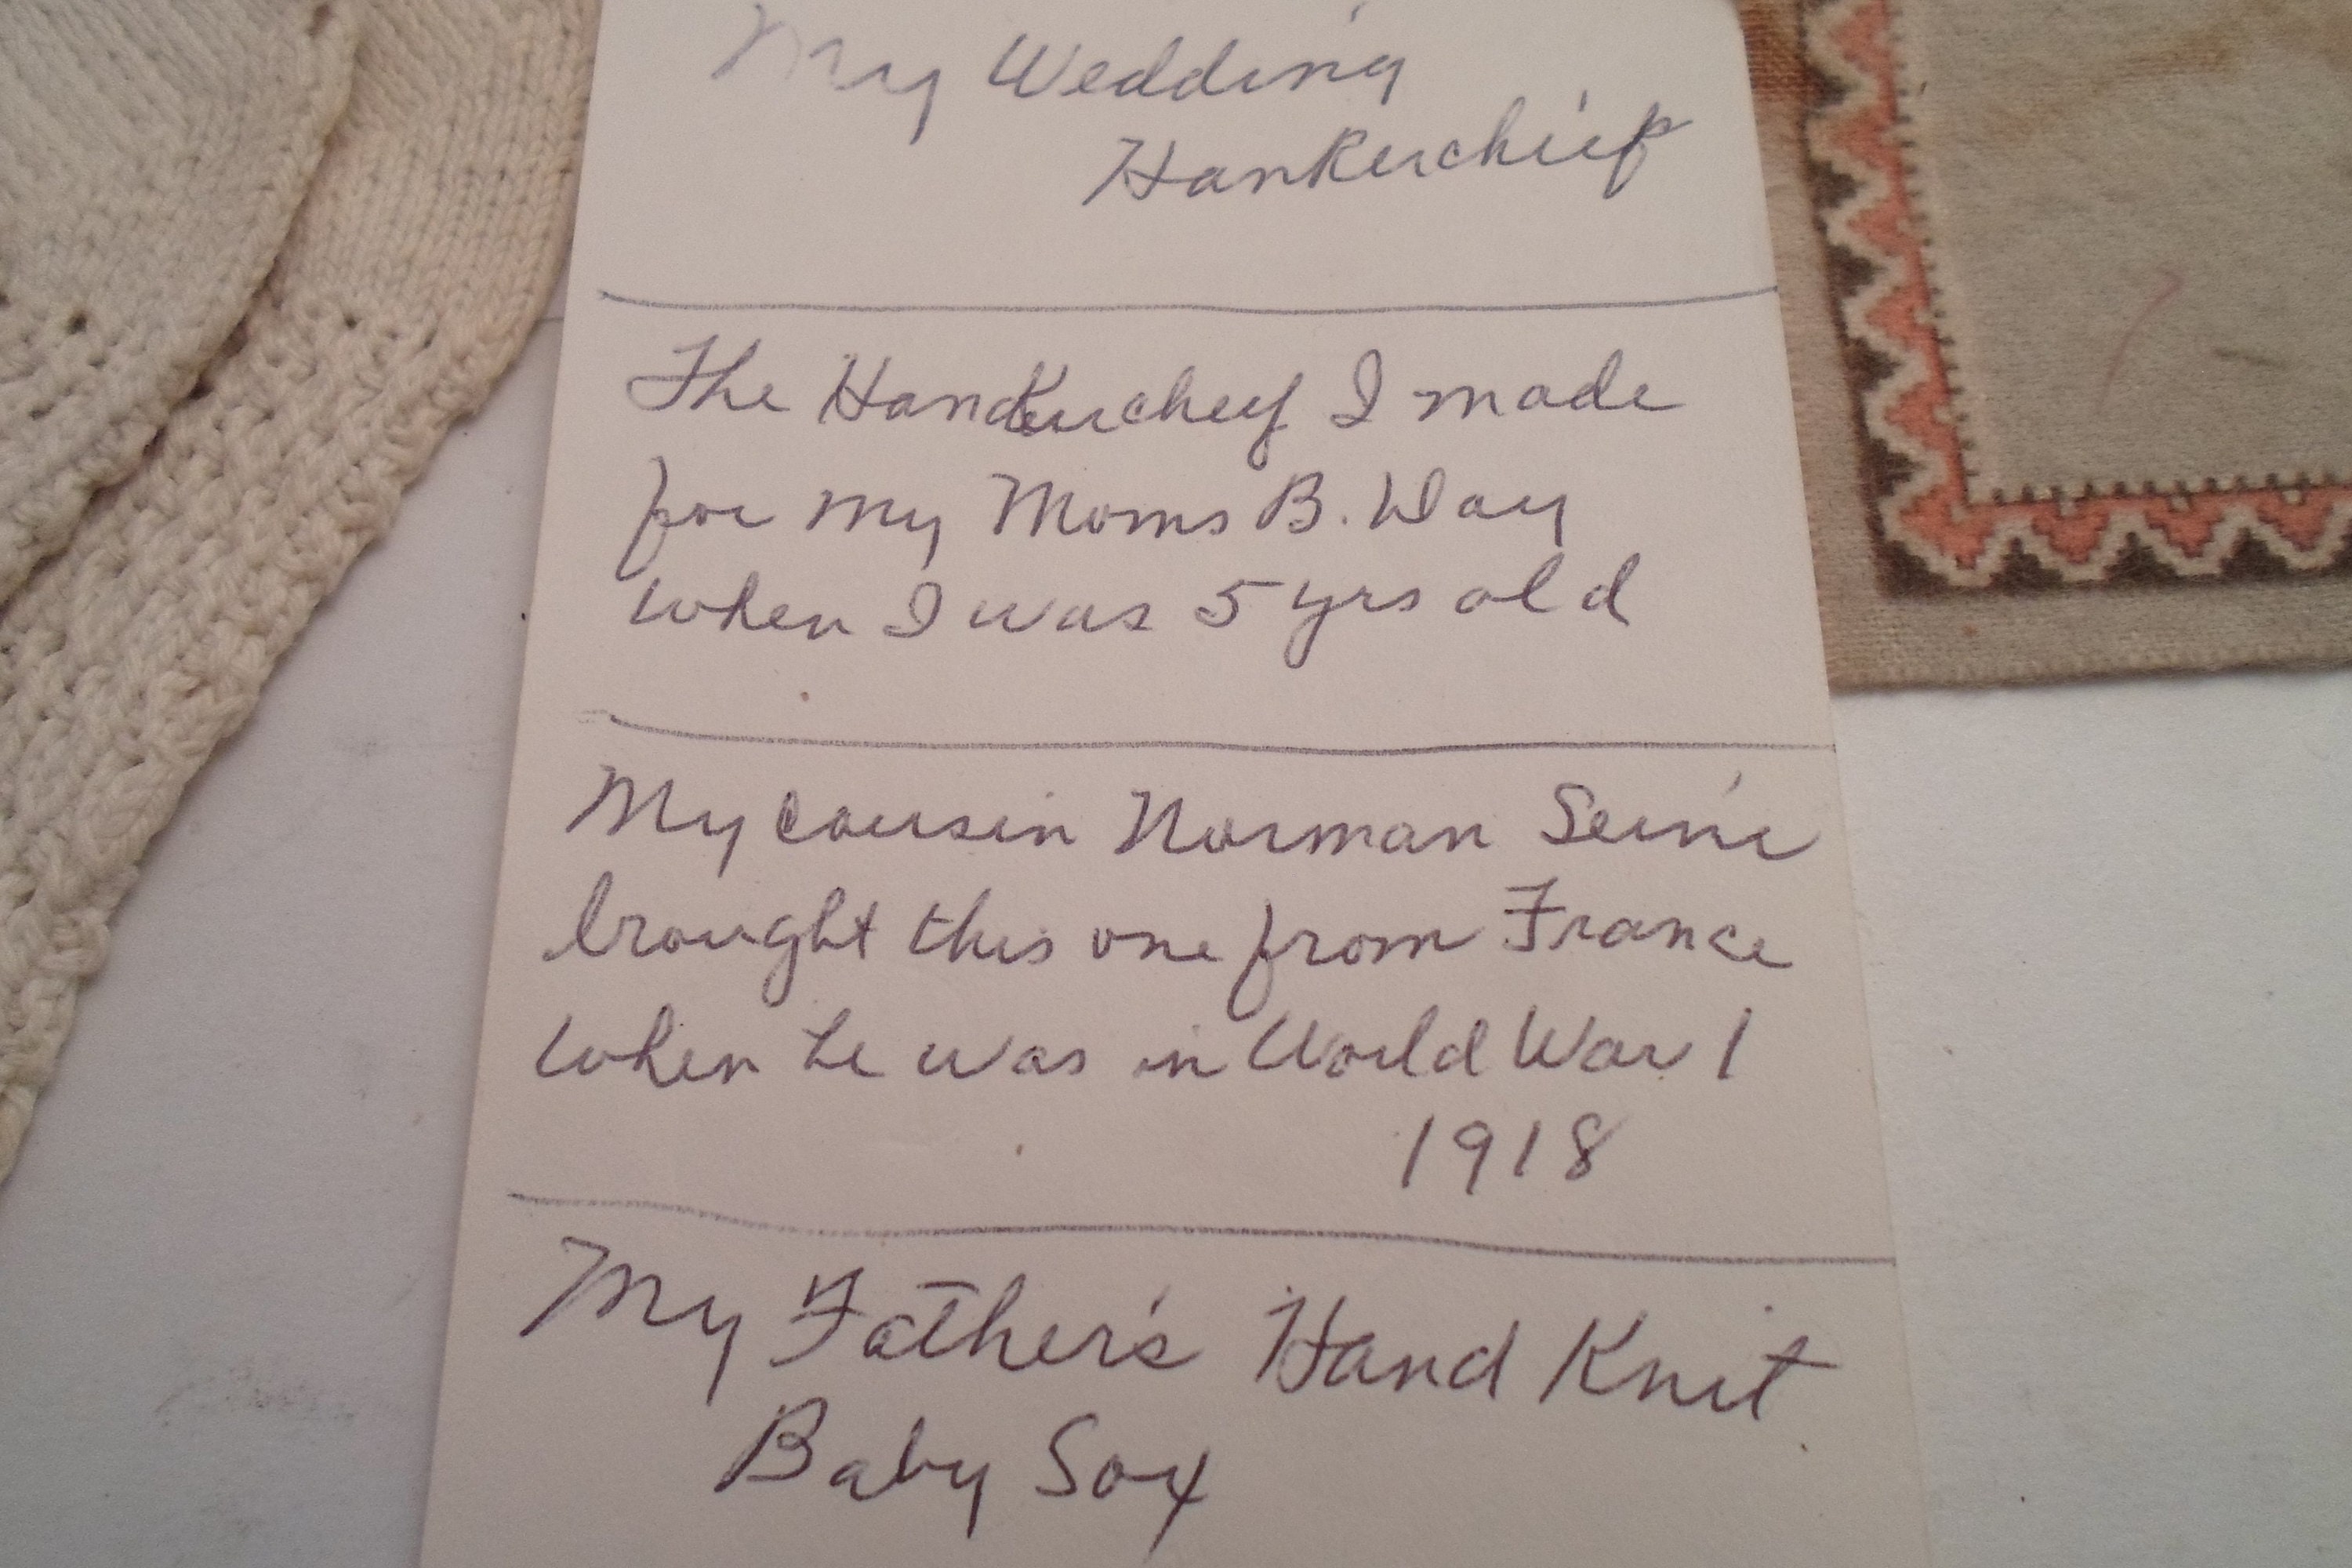 My Wedding
Hankerchief
The Handkerchef I made
for my Moms B. Day
when I was 5 yrs old
My cousin Norman Seine
brought this one from France
when he was in World War 1
1918
My Father's Hand Knit
Baby Sox